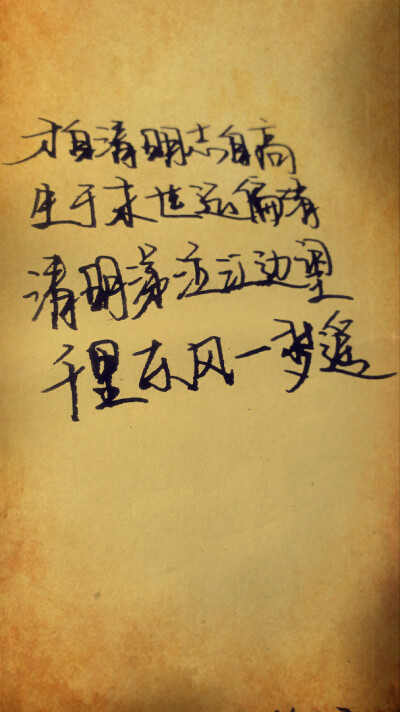 才自清明志自高
生于末世运偏消
清明涕泣江边望
千里东风一梦遥